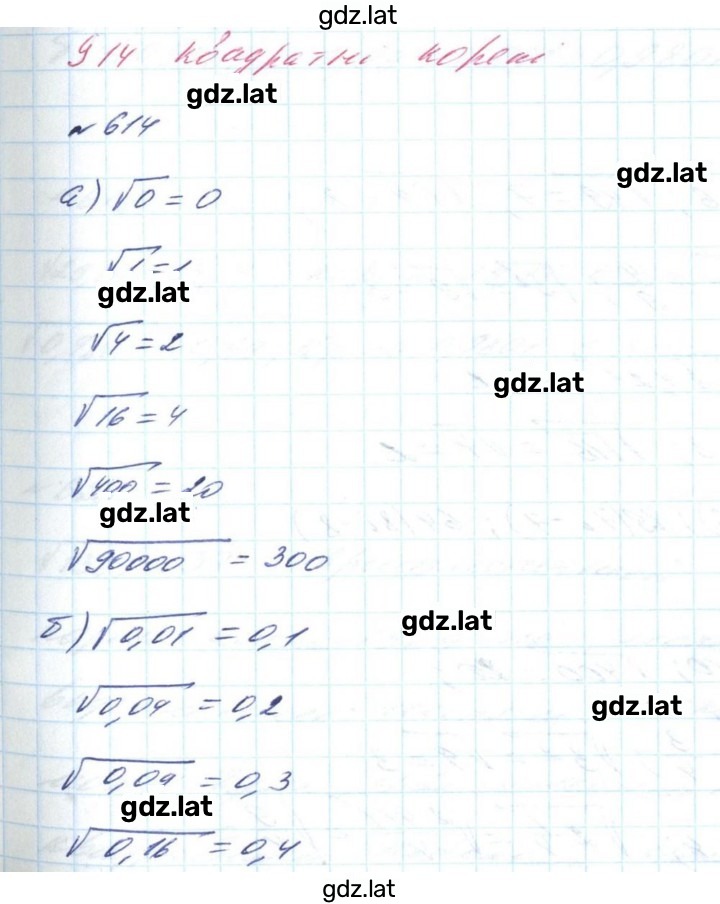 gdz.lat
§14 Квадратні корені
gdz.lat
№ 614
gdz.lat
а) √0 = 0
√1 = 1
gdz.lat
√4 = 2
gdz.lat
√16 = 4
√400 = 20
gdz.lat
√90000 = 300
gdz.lat
б) √0,01 = 0,1
√0,04 = 0,2
gdz.lat
√0,09 = 0,3
gdz.lat
√0,16 = 0,4
gdz.lat